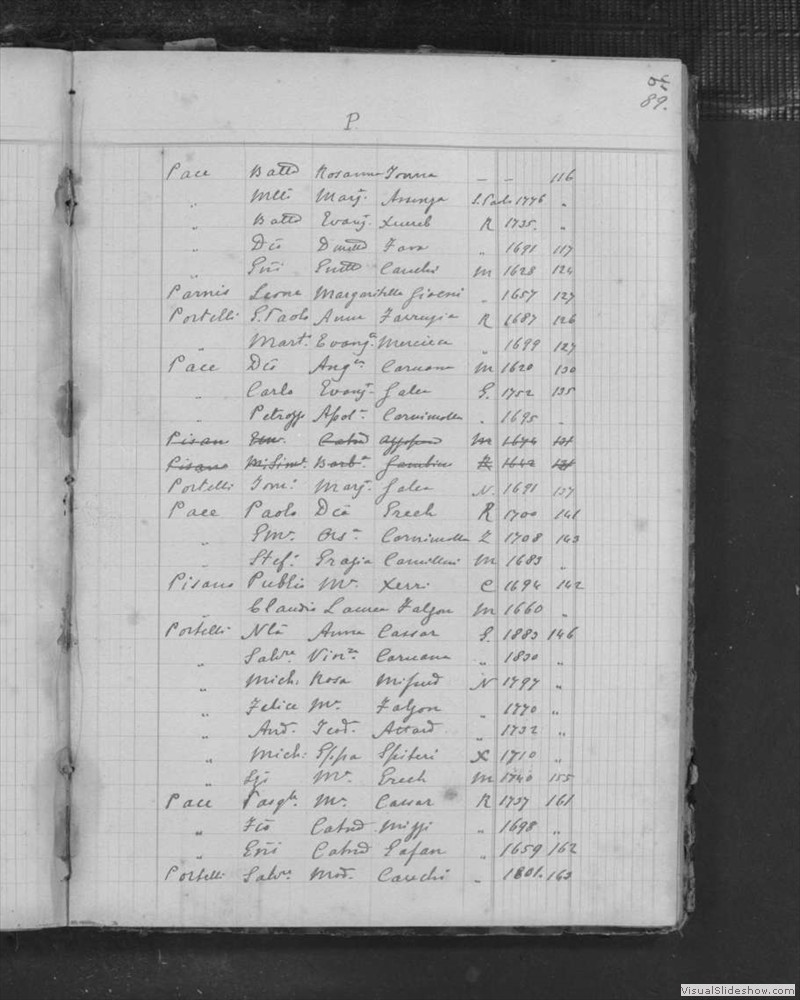 89.
P
Pace Batta Rosanna Tonna — — 116
„ Mtti Marj. Assenza S. Paolo 1776 „
„ Batta Evang. Xuereb R 1735. „
„ Dco Dmtta Fava „ 1691 117
„ Gmtta Cauchi M 1628 124
Parnis Leone Margaritella „ 1657 127
Portelli G. Paolo Anna Farrugia R 1687 126
„ Mart. Evang. Mercieca „ 1699 127
Pace Dco Ang. Caruana M 1620 130
„ Carlo Evang. Galea G. 1752 135
„ Petro Apol. „ 1695 „
Pisan M 1674 131
Pisano M. Sim. Barb. Gambin 1642 131
Portelli Tom. Marj. Galea N. 1691 137
Pace Paolo Dca Grech R 1700 141
„ Gm. Ors. Z 1708 143
„ Stef. Grazia Camilleri M 1683 „
Pisano Publio Ma. Xerri C 1694 142
„ Claudio Laurea Falzon M 1660 „
Portelli Nla Anna Cassar G. 1883 146
„ Salvre Vinza Caruana „ 1830 „
„ Mich. Rosa Mifsud N 1797 „
„ Felice Ma. Falzon „ 1770 „
„ And. Teod. Attard „ 1732 „
„ Mich. Gppa Spiteri X 1710 „
„ Ma. Grech M 1740 155
Pace Pasqle Ma. Cassar R 1737 161
„ Fco Catnd Mizzi „ 1698 „
„ Catnd Safan „ 1659 162
Portelli Salv. Mad. Cauchi „ 1801. 163
VisualSlideshow.com